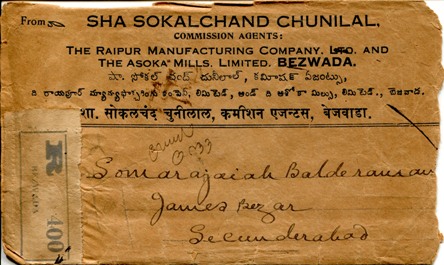 From
SHA SOKALCHAND CHUNILAL,
COMMISSION AGENTS:
THE RAIPUR MANUFACTURING COMPANY. LTD. AND
THE ASOKA MILLS, LIMITED. BEZWADA.
షా. సోకల్ చంద్ చునీలాల్, కమీషన్ ఏజంట్సు,
ది రాయపూర్ మాన్యుఫ్యాక్చరింగు కంపెనీ, లిమిటెడ్, అండ్ ది ఆశోకా మిల్సు, లిమిటెడ్., బెజవాడ.
शा. सोकलचंद चुनीलाल, कमीशन एजन्टस, बेजवाडा.
R
400
Somarajaiah
James Bezar
Secunderabad